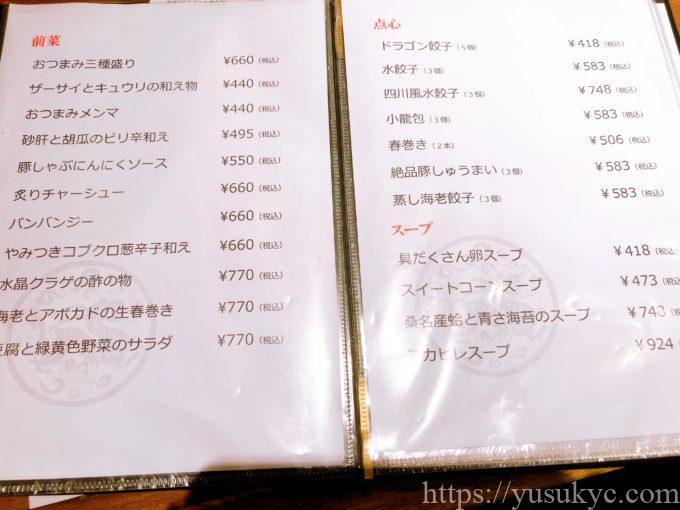 前菜
おつまみ三種盛り ¥660(税込)
ザーサイとキュウリの和え物 ¥440(税込)
おつまみメンマ ¥440(税込)
砂肝と胡瓜のピリ辛和え ¥495(税込)
豚しゃぶにんにくソース ¥550(税込)
炙りチャーシュー ¥660(税込)
バンバンジー ¥660(税込)
やみつきコブクロ葱辛子和え ¥660(税込)
水晶クラゲの酢の物 ¥770(税込)
海老とアボカドの生春巻き ¥770(税込)
腐と緑黄色野菜のサラダ ¥770(税込)
点心
ドラゴン餃子(5個) ¥418(税込)
水餃子(3個) ¥583(税込)
四川風水餃子(3個) ¥748(税込)
小龍包(3個) ¥583(税込)
春巻き(2本) ¥506(税込)
絶品豚しゅうまい(3個) ¥583(税込)
蒸し海老餃子(3個) ¥583(税込)
スープ
具だくさん卵スープ ¥418(税込)
スイートコーンスープ ¥473(税込)
桑名産蛤と青さ海苔のスープ ¥748(税込
カヒレスープ ¥924
https://yusukyc.com